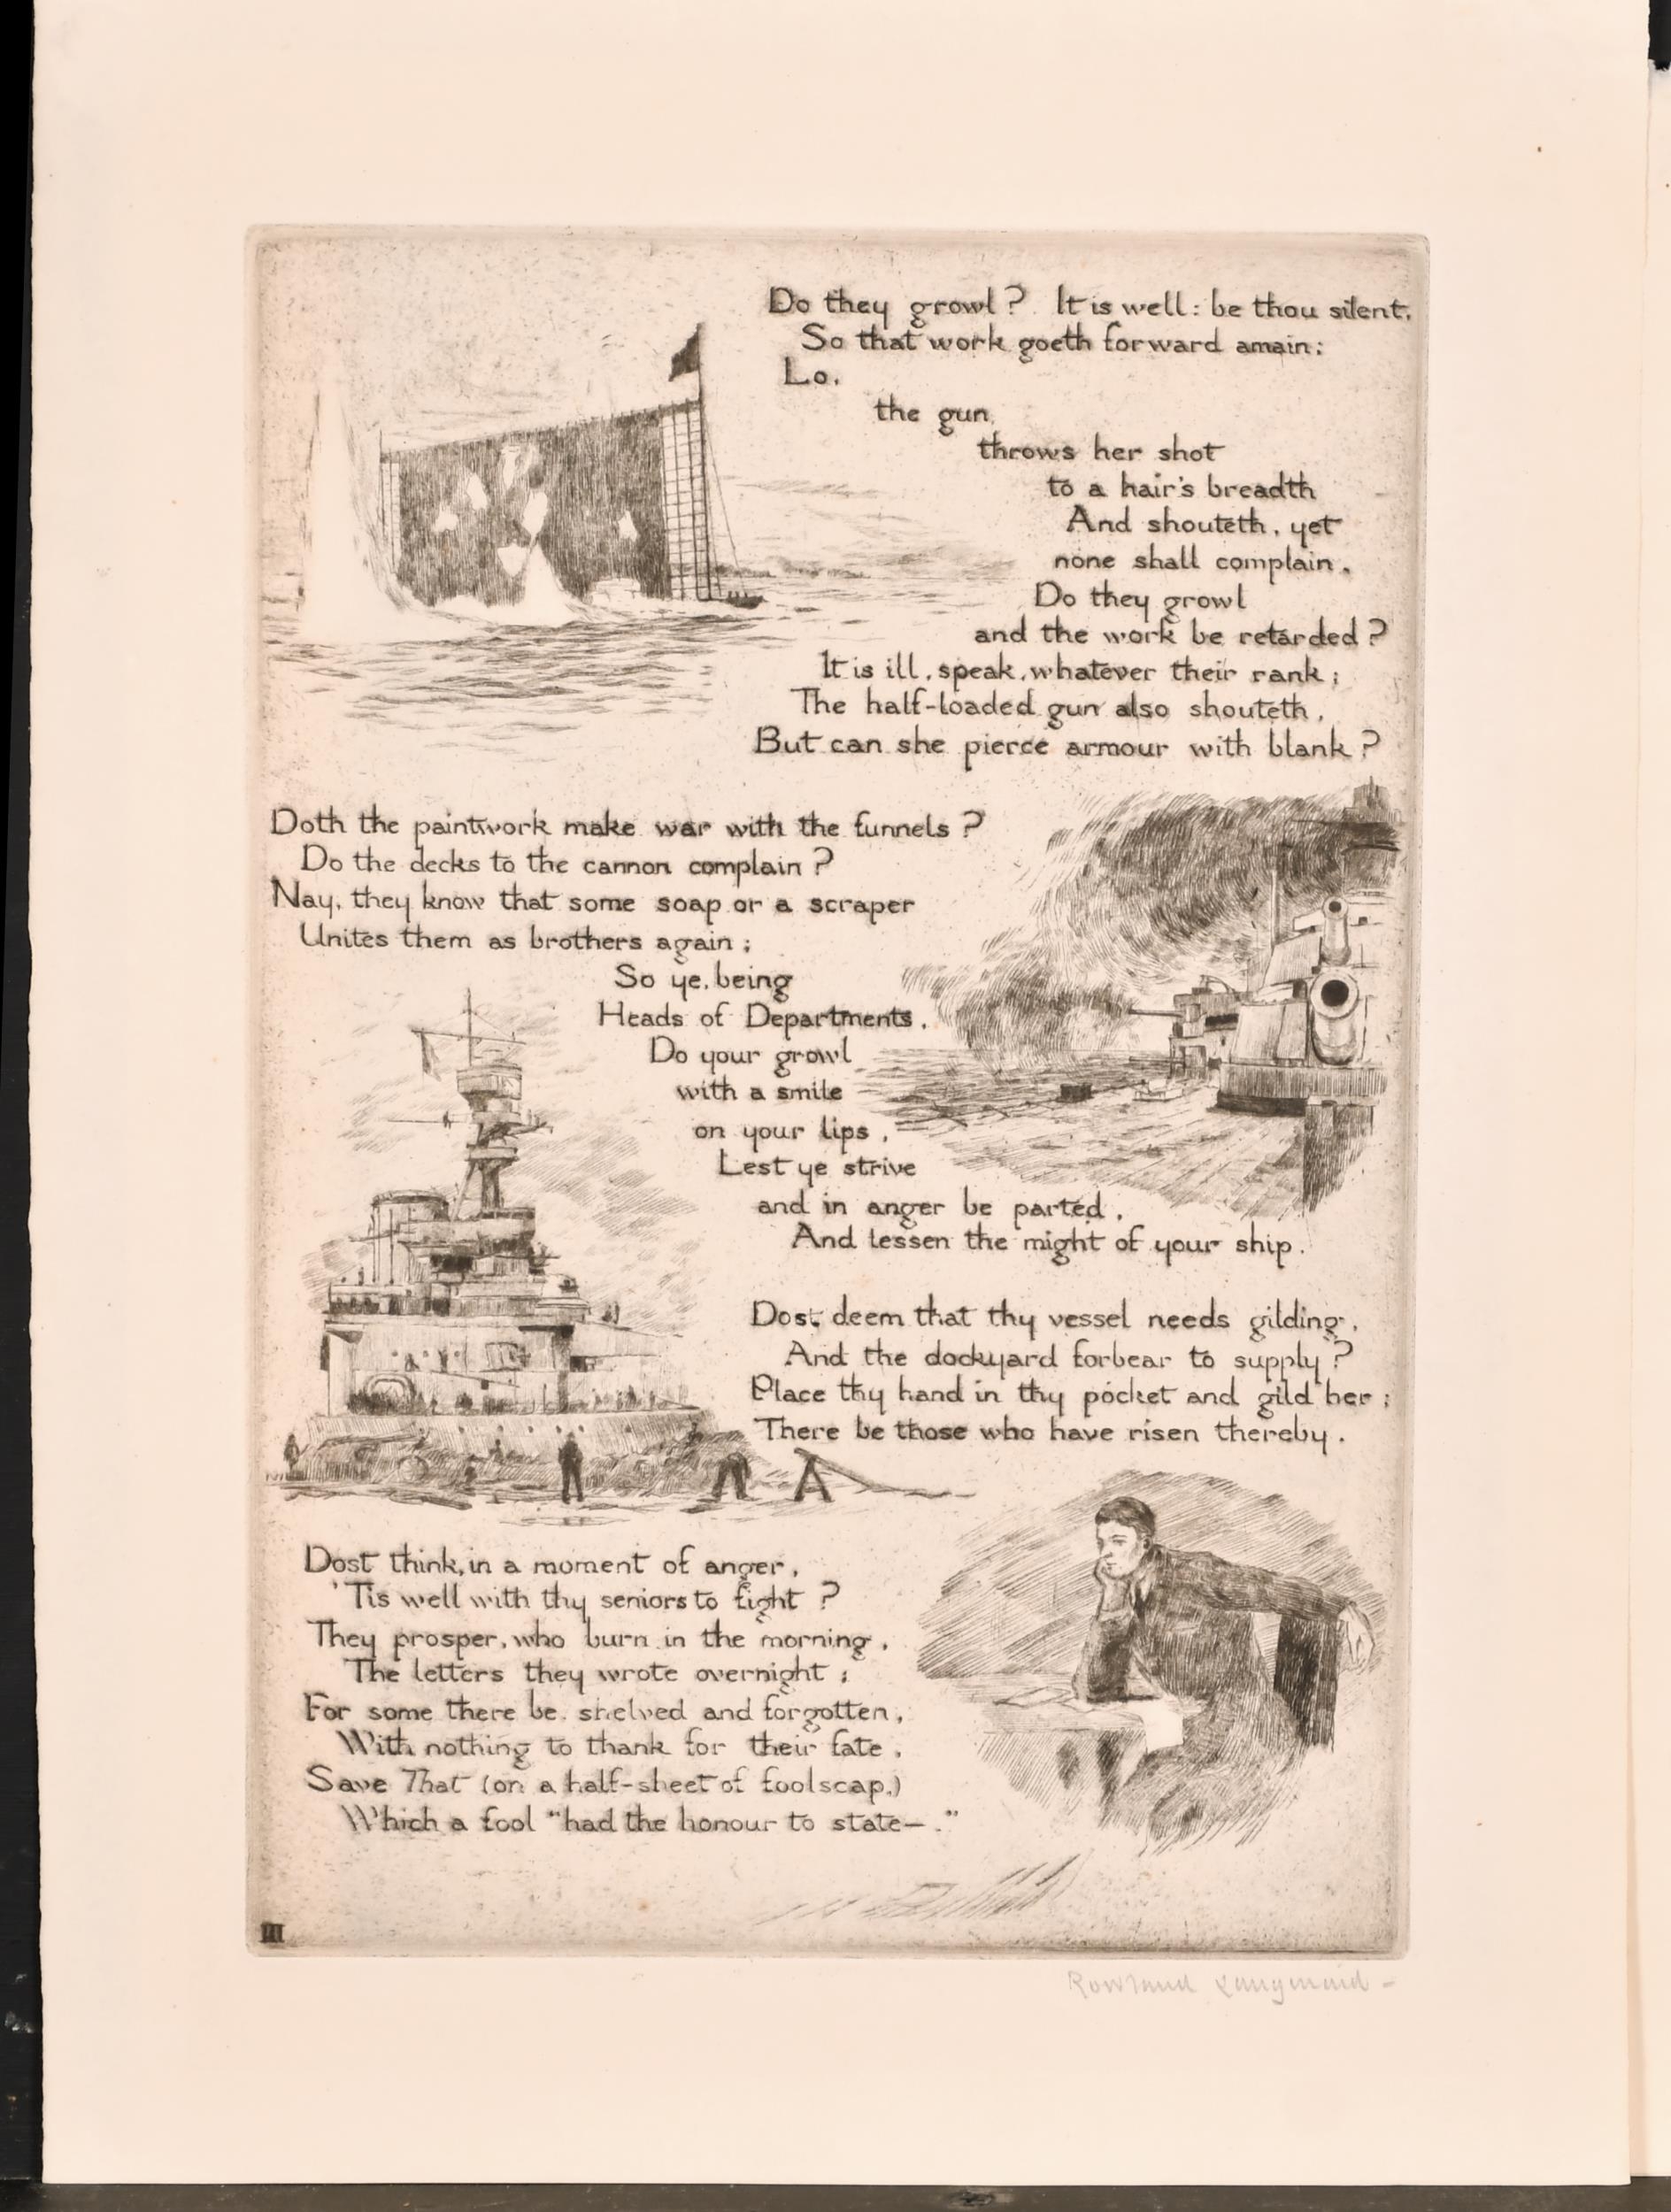 Do they growl? It is well: be thou silent,
So that work goeth forward amain;
Lo,
the gun
throws her shot
to a hair's breadth
And shouteth, yet
none shall complain.
Do they growl
and the work be retarded?
It is ill, speak, whatever their rank;
The half-loaded gun also shouteth,
But can she pierce armour with blank?
Doth the paintwork make war with the funnels?
Do the decks to the cannon complain?
Nay, they know that some soap or a scraper
Unites them as brothers again;
So ye, being
Heads of Departments,
Do your growl
with a smile
on your lips,
Lest ye strive
and in anger be parted,
And lessen the might of your ship.
Dost deem that thy vessel needs gilding,
And the dockyard forbear to supply?
Place thy hand in thy pocket and gild her;
There be those who have risen thereby.
Dost think, in a moment of anger,
'Tis well with thy seniors to fight?
They prosper, who burn in the morning,
The letters they wrote overnight;
For some there be, shelved and forgotten,
With nothing to thank for their fate,
Save That (on a half-sheet of foolscap,)
Which a fool "had the honour to state—."
III
Rowland Langmaid -